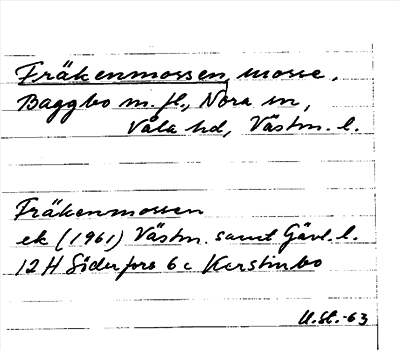 Fräkenmossen, mosse,
Baggbo m. fl., Nora sn,
Våla hd, Västm. l.
Fräkenmossen
ek (1961) Västm. samt Gävl. l.
12 H Söderfors 6 c Kerstinbo
U.St.-63